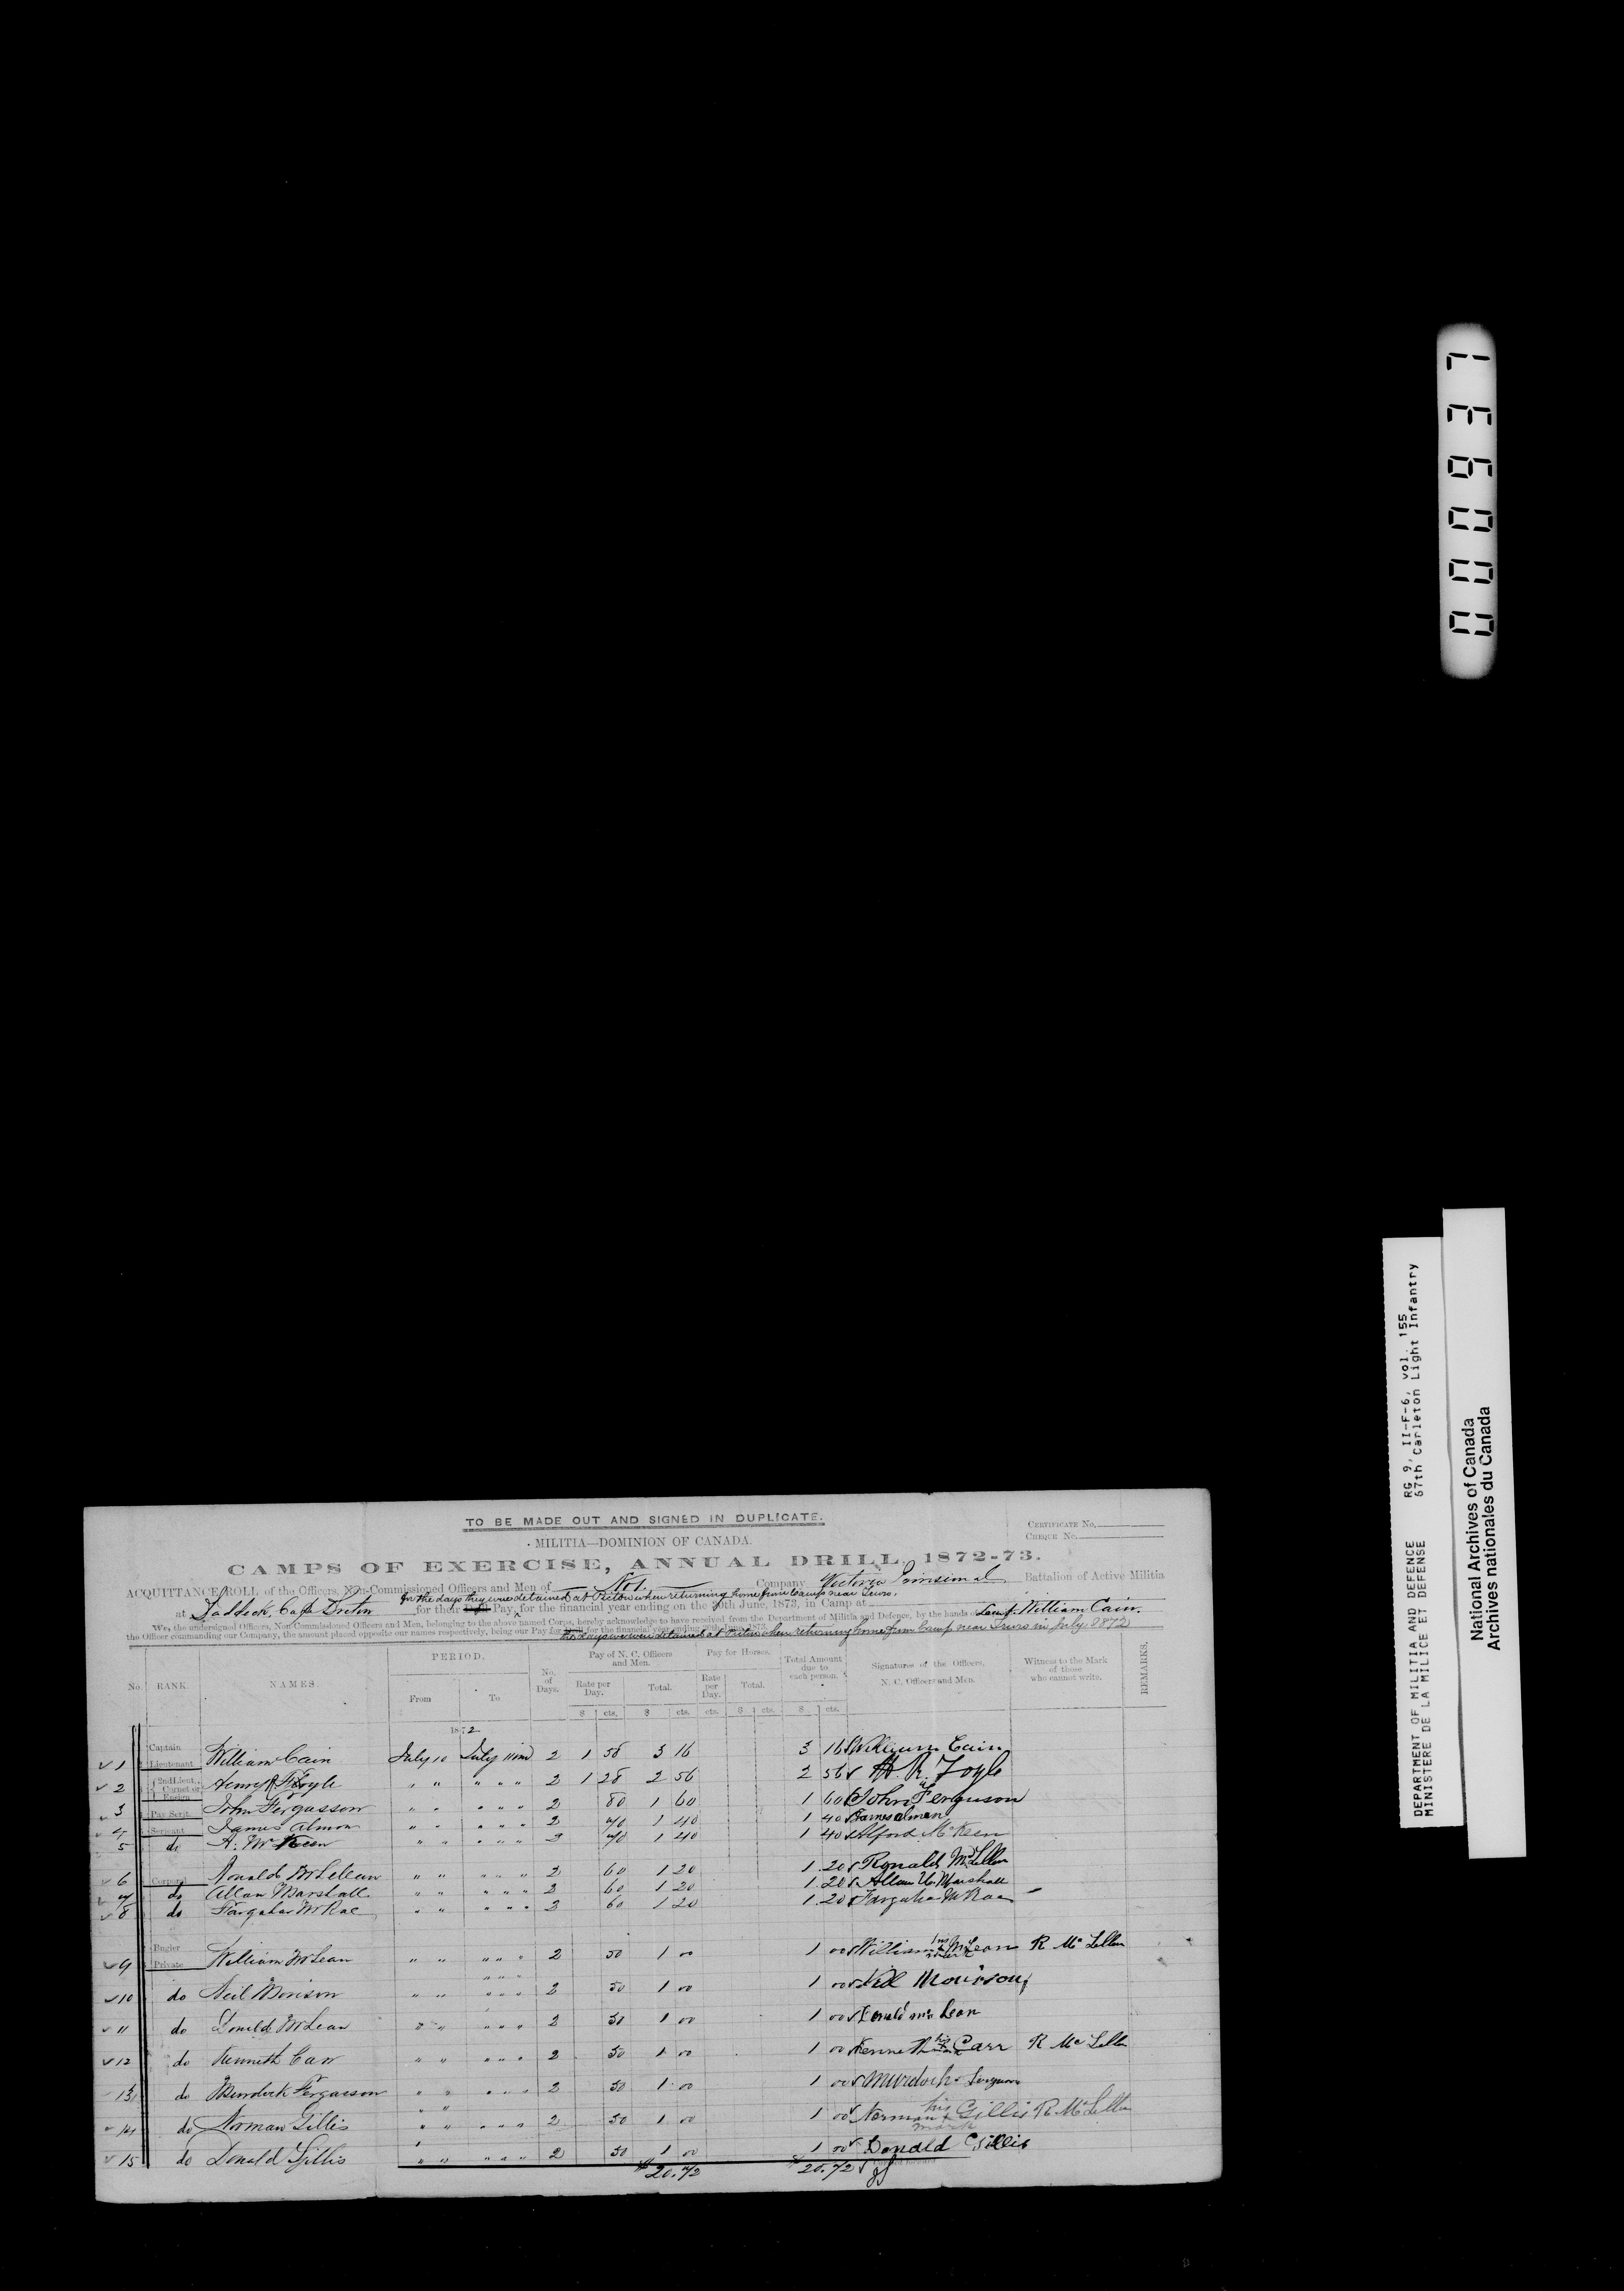 TO BE MADE OUT AND SIGNED IN DUPLICATE.
CERTIFICATE No.
CHEQUE No.
MILITIA—DOMINION OF CANADA.
CAMPS OF EXERCISE, ANNUAL DRILL, 1872-73.
ACQUITTANCE ROLL of the Officers, Non-Commissioned Officers and Men of No 1. Company Victoria Provisional Battalion of Active Militia
for the days they were detained at Pictou when returning home from Camp near Truro.
at Baddeck, Cape Breton for their Drill Pay, for the financial year ending on the 30th June, 1873, in Camp at
We, the undersigned Officers, Non-Commissioned Officers and Men, belonging to the above named Corps, hereby acknowledge to have received from the Department of Militia and Defence, by the hands of Lieut. William Cain.
the Officer commanding our Company, the amount placed opposite our names respectively, being our Pay for the days we were detained at Pictou when returning home from Camp near Truro in July 1872
No. RANK. NAMES. PERIOD. From To No. of Days. Pay of N. C. Officers and Men. Rate per Day. Total. Pay for Horses. Rate per Day. Total. Total Amount due to each person. Signatures of the Officers, N. C. Officers and Men. Witness to the Mark of those who cannot write. REMARKS.
$ cts. $ cts. cts. $ cts. $ cts.
1872
Captain
1 Lieutenant William Cain July 10 July 11 2 1 58 3 16 3 16 William Cain
2 2nd Lieut., Cornet or Ensign Henry R Foyle " " " " " 2 1 28 2 56 2 56 H. R. Foyle
3 Pay Serjt. John Fergusson " " " " " 2 80 1 60 1 60 John Ferguson
4 Serjeant James Almon " " " " " 2 70 1 40 1 40 James Almon
5 do A. McKeen " " " " " 2 70 1 40 1 40 Alford McKeen
6 Corporal Ronald McLellan " " " " " 2 60 1 20 1.20 Ronald McLellan
7 do Allan Marshall " " " " " 2 60 1 20 1.20 Allan Marshall
8 do Farquhar McRae " " " " " 2 60 1 20 1.20 Farquhar McRae
Bugler
9 Private William McLean " " " " " 2 50 1 00 1 00 William his mark McLean R McLellan
10 do Neil Morison " " " " " 2 50 1 00 1 00 Neil Morrison
11 do Donald McLean " " " " " 2 50 1 00 1 00 Donald McLean
12 do Kenneth Carr " " " " " 2 50 1 00 1 00 Kenneth his mark Carr R McLellan
13 do Murdock Fergusson " " " " " 2 50 1 00 1 00 Murdoch Ferguson
14 do Norman Gillis " " " " " 2 50 1 00 1 00 Norman his mark Gillis R McLellan
15 do Donald Gillis " " " " " 2 50 1 00 1 00 Donald Gillis
$20.72 $20.72
000937
RG 9, II-F-6, vol. 155
67th Carleton Light Infantry
DEPARTMENT OF MILITIA AND DEFENCE
MINISTERE DE LA MILICE ET DEFENSE
National Archives of Canada
Archives nationales du Canada